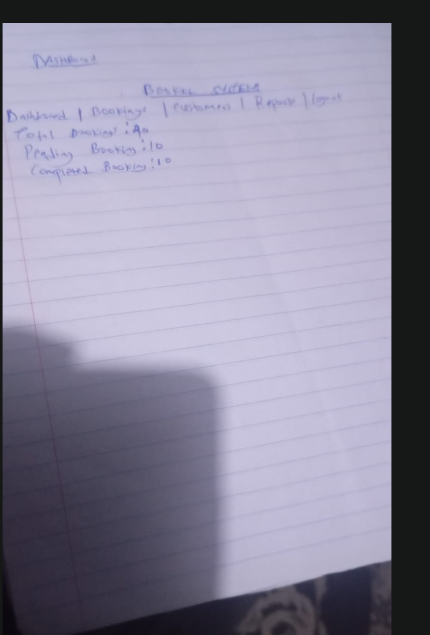 Dashboard
Booking System
Dashboard | Bookings | Customers | Reports | Logout
Total Booking: 40
Pending Booking: 10
Completed Booking: 10